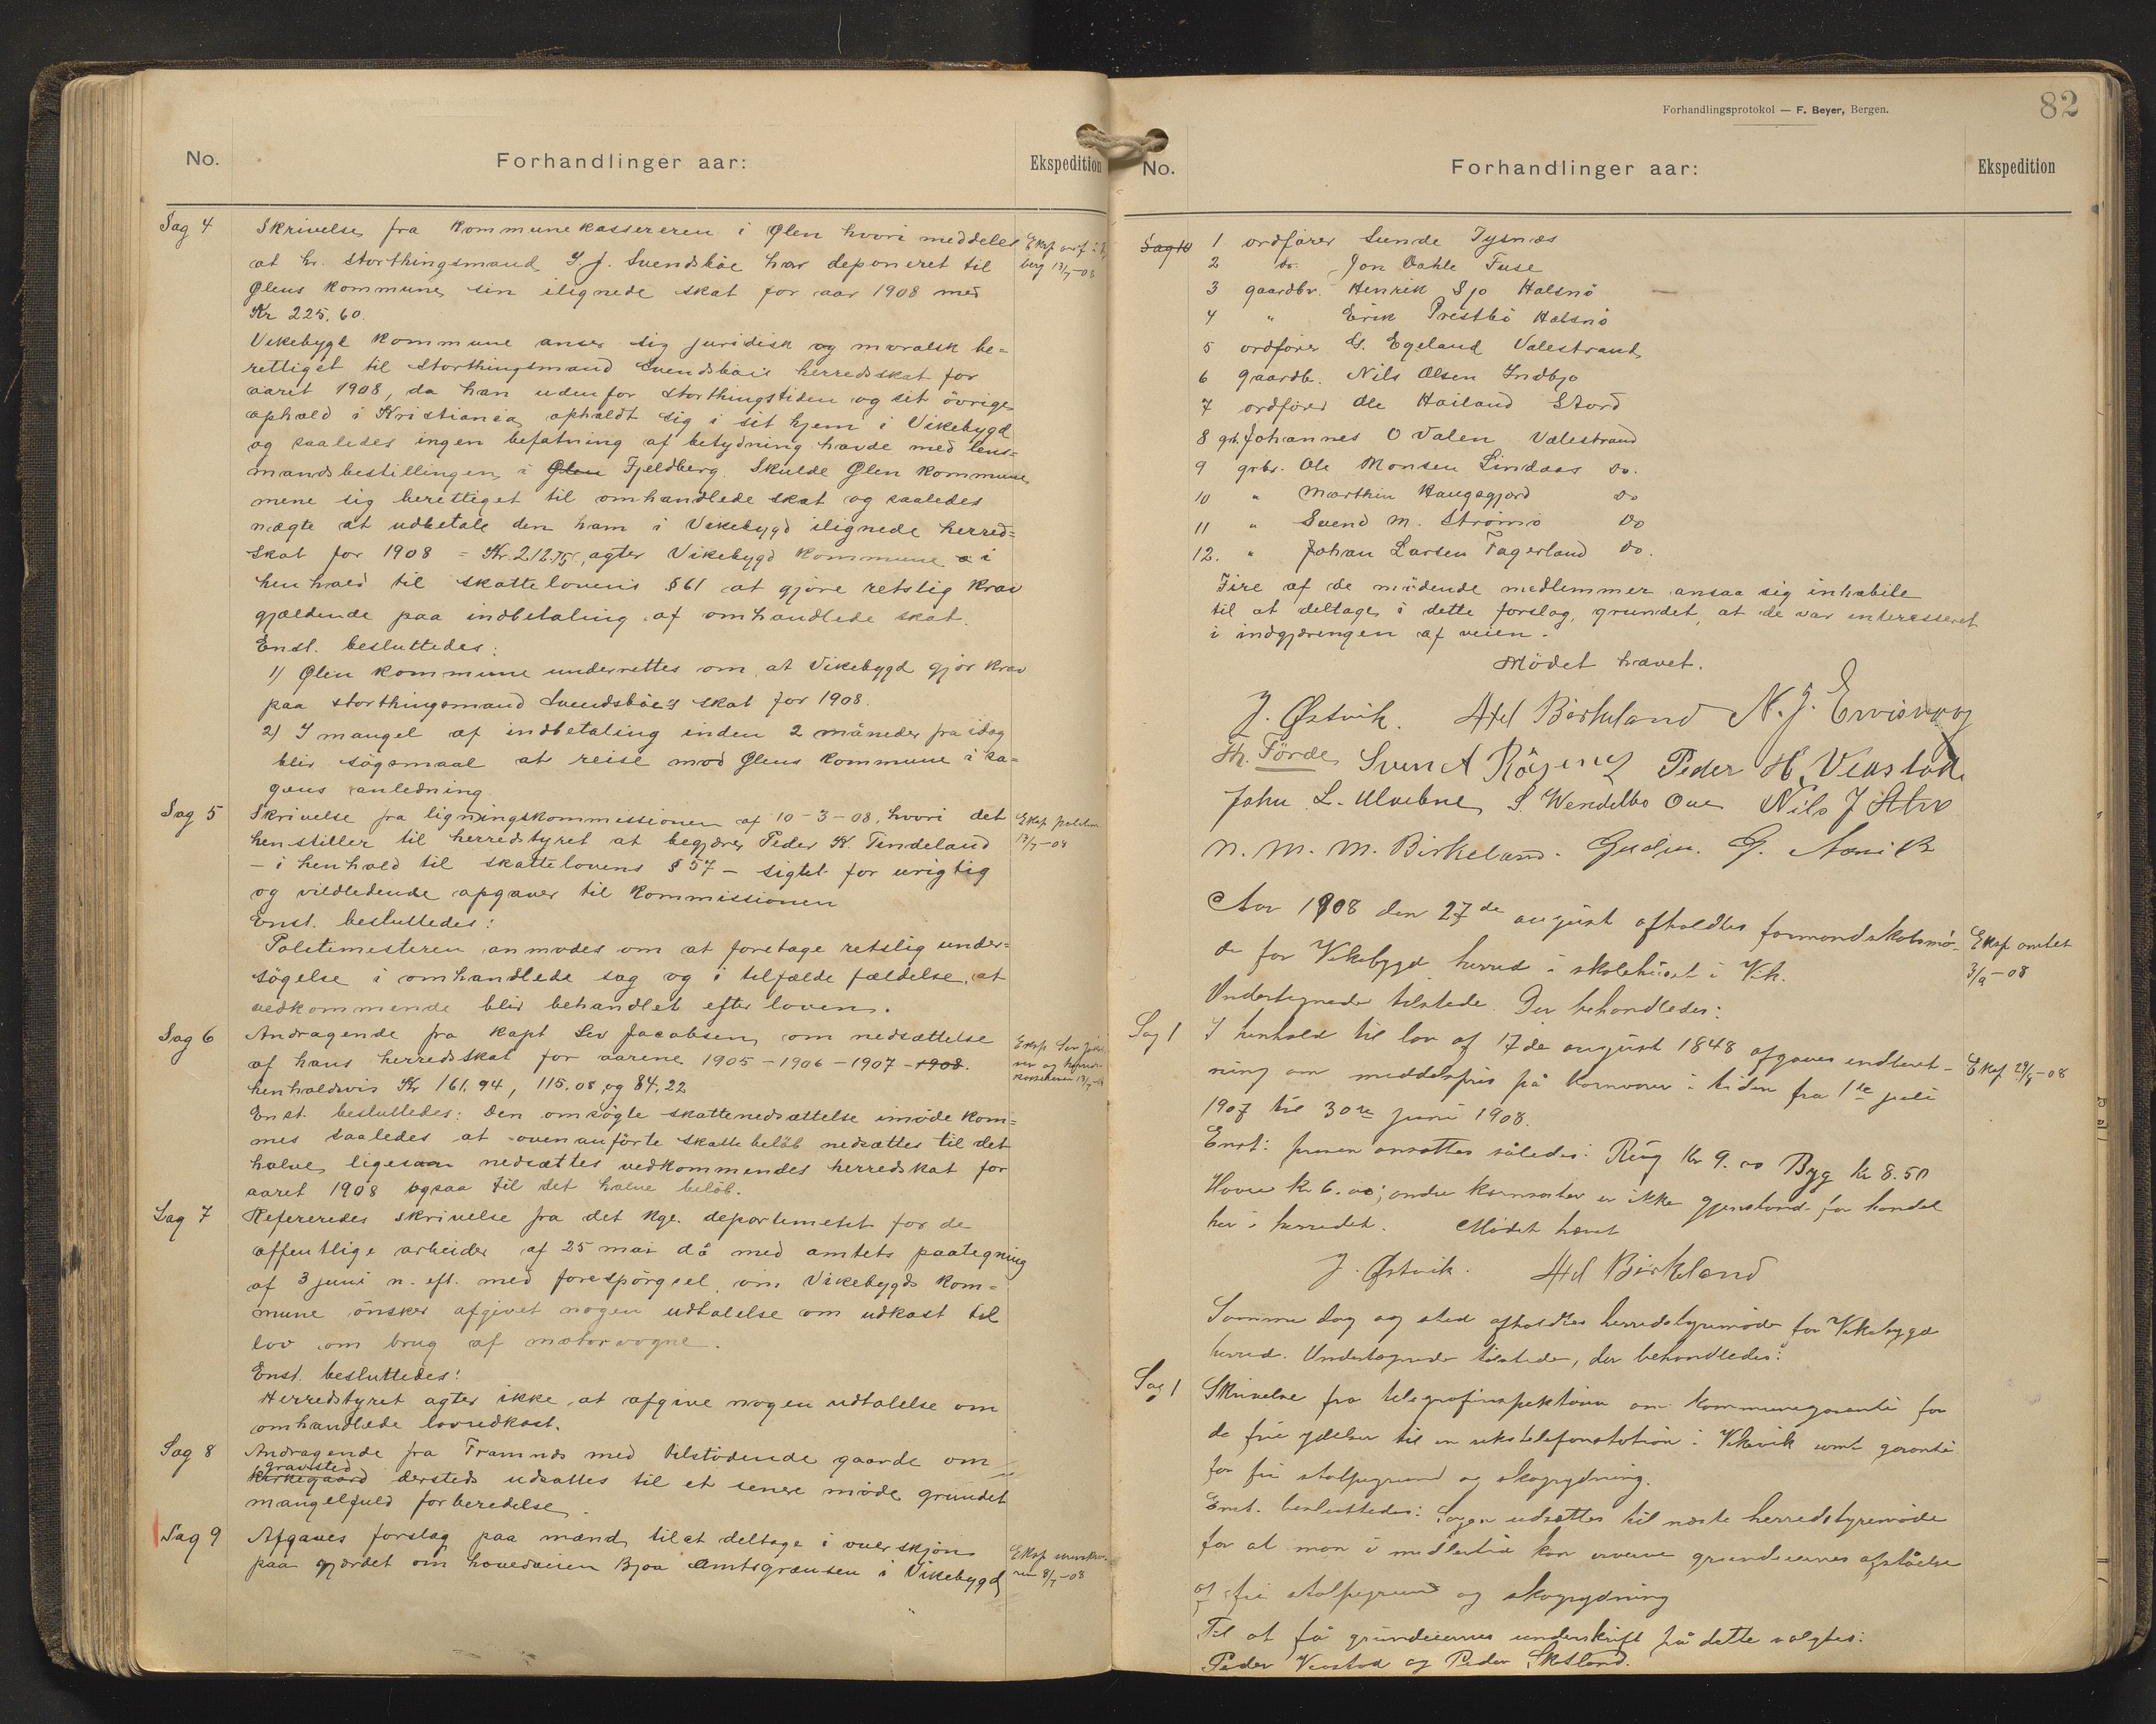 No. Forhandlinger aar: Ekspedition
Sag 4 Skrivelse fra kommunekassereren i Ølen hvori meddeles
at hr. storthingsmand J. J. Svendsbøe har deponeret til
Ølens kommune sin ilignede skat for aar 1908 med
Kr 225.60.
Vikebygd kommune anser sig juridisk og moralsk be=
rettiget til storthingsmand Svendsbøes herredsskat for
aaret 1908, da han udenfor storthingstiden og sit övrige
ophold i Kristiania opholdt sig i sit hjem i Vikebygd
og saaledes ingen befatning af betydning havde med lens=
mandsbestillingen i Ølen Fjeldberg. Skulde Ølen kommune
mene sig berettiget til omhandlede skat og saaledes
nægte at udbetale den ham i Vikebygd ilignede herred=
skat for 1908 = Kr. 212.75, agter Vikebygd kommune i
henhold til skattelovens § 61 at gjøre retslig krav
gjældende paa indbetaling af omhandlede skat.
Enst. besluttedes:
1) Ølen kommune underrettes om, at Vikebygd gjør krav
paa storthingsmand Svendsbøes skat for 1908.
2) I mangel af indbetaling inden 2 måneder fra idag
blir søgsmaal at reise mod Ølens kommune i sa=
gens anledning
Sag 5 Skrivelse fra ligningskommissionen af 10-3-08, hvori det
henstiller til herredstyret at begjære Peder K. Tindeland
- i henhold til skattelovens § 57 - sigtet for urigtig
og vildledende opgaver til kommissionen
Enst. besluttedes:
Politimesteren anmodes om at foretage retslig under=
søgelse i omhandlede sag og i tilfælde fældelse, at
vedkommende blir behandlet efter loven.
Sag 6 Andragende fra kapt Sev Jacobsen om nedsættelse
af hans herredsskat for aarene 1905 - 1906 - 1907 - 1908.
henholdsvis Kr 161.94, 115.08 og 84.22
Enst. besluttedes: Den omsøgte skattenedsættelse imøde kom=
mes saaledes at ovenanförte skattebeløb nedsættes til det
halve, ligesaa nedsættes vedkommendes herredskat for
aaret 1908 ogsaa til det halve beløb.
Sag 7 Refereredes skrivelse fra det kge. departementet for de
offentlige arbeider af 25 mai då med amtets paategning
af 3 juni n. eft. med forespørgsel om Vikebygds kom=
mune ønsker afgivet nogen udtalelse om udkast til
lov om brug af motorvogne.
Enst. besluttedes:
Herredstyret agter ikke at afgive nogen udtalelse om
omhandlede lovudkast.
Sag 8 Andragende fra Framnes med tilstödende gaarde om
gravsted
kirkegaard dersteds udsattes til et senere møde grundet
mangelfuld forberedelse.
Sag 9 Afgaves forslag paa mænd til at deltage i overskjøn
paa gjærdet om hovedveien Bjoa Amtsgrænsen i Vikebygd
Forhandlingsprotokol — F. Beyer, Bergen.
82
No. Forhandlinger aar: Ekspedition
Sag 10 1 ordfører Sunde Tysnæs
2 do. Jon Dahle Fuse
3 gaardbr. Henrik Sjo Halsnö
4 " Erik Prestbö Halsnö
5 ordfører G. Egeland Valestrand
6 gaardb. Nils Olsen Indbjo
7 ordfører Ole Hailand Stord
8 gb. Johannes O Valen Valestrand
9 grbr. Ole Monsen Lindaas do.
10 " Marthin Haugsgjerd do
11 " Svend M. Strömö do
12. " Johan Larsen Fagerland do.
Fire af de mödende medlemmer ansaa sig inhabile
til at deltage i dette forslag, grundet, at de var interesseret
i indgjæringen af veien.
Mödet hævet.
J. Østvik. Axel Birkeland
Th. Førde Peder H. Veastad
John L. S Wendelbo Nils J
N. M. M. Birkeland.
Aar 1908 den 27de august afholdtes formandskabsmø-
de for Vikebygd herred i skolehuset i Vik.
Undertegnede tilstede. Der behandledes:
Sag 1 I henhold til lov af 17de august 1848 afgaves indberet-
ning om middelpris på kornvarer i tiden fra 1ste juli
1907 til 30te juni 1908.
Enst: prisen ansattes således: Rug kr 9.00 Byg kr 8.50
Havre kr 6.00; andre kornsorter er ikke gjenstand for handel
her i herredet. Mödet hævet
J. Østvik. Axel Birkeland
Samme dag og sted afholdtes herredstyremøde for Vikebygd
herred. Undertegnede tilstede, der behandledes:
Sag 1 Skrivelse fra telegrafinspektøren om kommunegaranti for
de frie ydelser til en rikstelefonstation i Vikevik samt garanti
for fri stolpegrund og skogrydning.
Enst. besluttedes: Sagen udsættes til næste herredstyremøde
for at man i midlertid kan erverve grundeiernes afståelse
af fri stolpegrund og skogrydning
Til at få grundeiernes underskrift på dette valgtes:
Peder Veastad og Peder Sketland.
Eksp amtet
3/9-08
Eksp 29/8-08